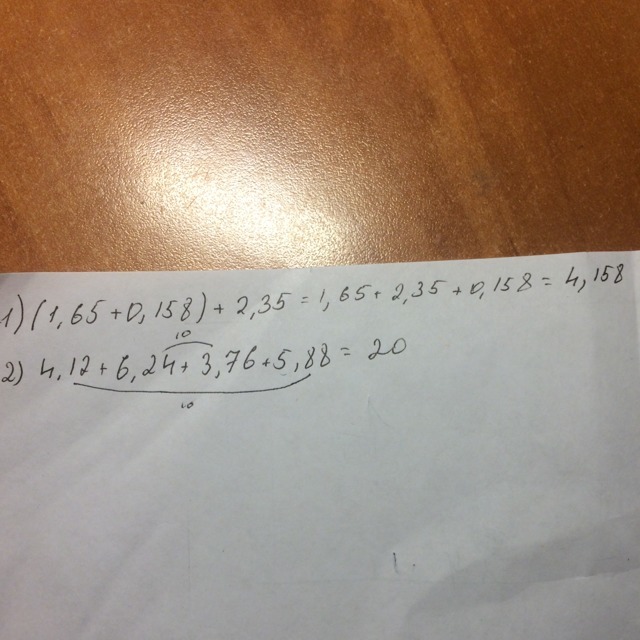 1) (1,65+0,158)+2,35=1,65+2,35+0,158=4,158
10
2) 4,12+6,24+3,76+5,88=20
10